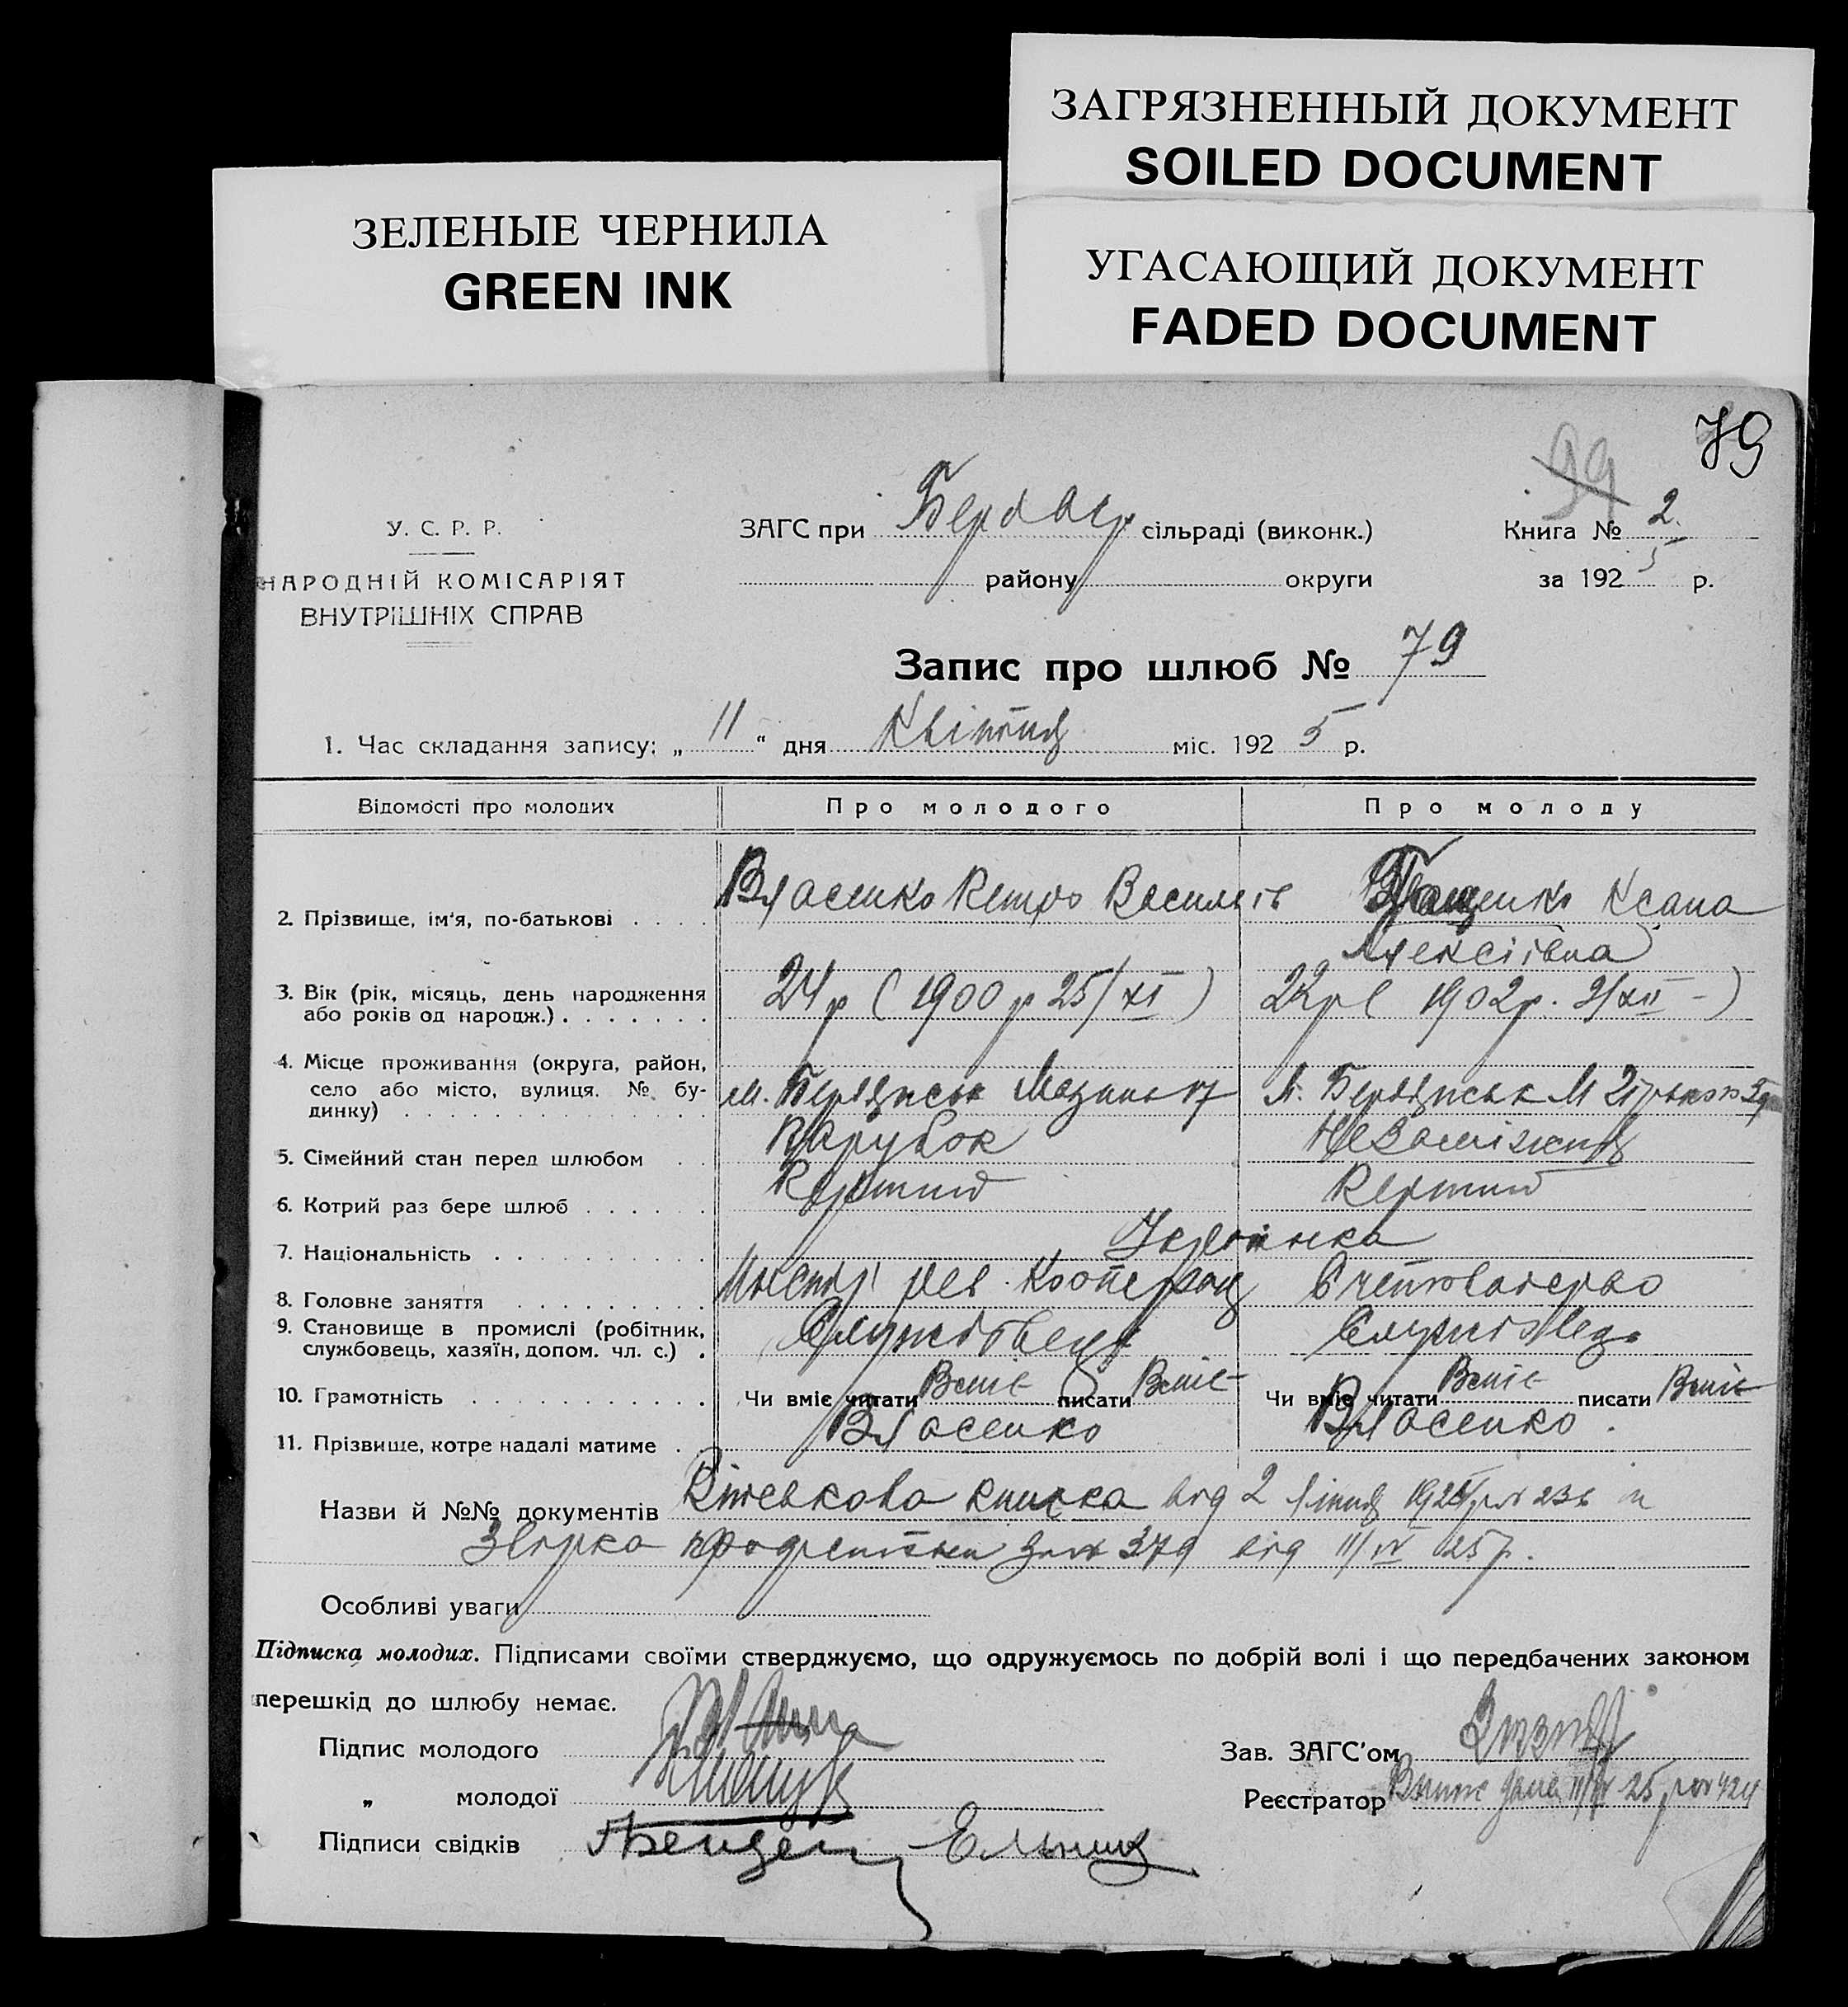 ЗАГРЯЗНЕННЫЙ ДОКУМЕНТ
SOILED DOCUMENT
ЗЕЛЕНЫЕ ЧЕРНИЛА
GREEN INK
УГАСАЮЩИЙ ДОКУМЕНТ
FADED DOCUMENT
79
99
У. С. Р. Р.
НАРОДНІЙ КОМІСАРІЯТ
ВНУТРІШНІХ СПРАВ
ЗАГС при сільраді (виконк.)
району округи
Книга № 2
за 1925 р.
Запис про шлюб № 79
1. Час складання запису: „ 11 “ дня Квітня міс. 1925 р.
Відомості про молодих Про молодого Про молоду
2. Прізвище, ім'я, по-батькові . . . . Власенко Петро Василів Пащенко Ксана
Алексіївна
3. Вік (рік, місяць, день народження або років од народж.) . . . . . . . 24 р (1900 р 25/XI) 22 р ( 1902 р. 2/XII -)
4. Місце проживання (округа, район, село або місто, вулиця. № будинку) . . . . . м. Бердянськ 17 м. Бердянськ
5. Сімейний стан перед шлюбом . . Парубок Незаміжня
6. Котрий раз бере шлюб . . . . . . Перший Перший
7. Національність . . . . . . . . . Українка
8. Головне заняття . . . . . . . . . Счетоводство
9. Становище в промислі (робітник, службовець, хазяїн, допом. чл. с.) . Службовець Службовець
10. Грамотність . . . . . . . . . . . Чи вміє читати Вміє писати Вміє Чи вміє читати Вміє писати Вміє
11. Прізвище, котре надалі матиме . . Власенко Власенко.
Назви й №№ документів Військова книжка від 2 липня 192 р № 236 и
Звірка за № 379 від 11/IV 25 р.
Особливі уваги
Підписка молодих. Підписами своїми стверджуємо, що одружуємось по добрій волі і що передбачених законом
перешкід до шлюбу немає.
Підпис молодого Зав. ЗАГС'ом
„ молодої Реєстратор 11/IV 25 р № 424
Підписи свідків